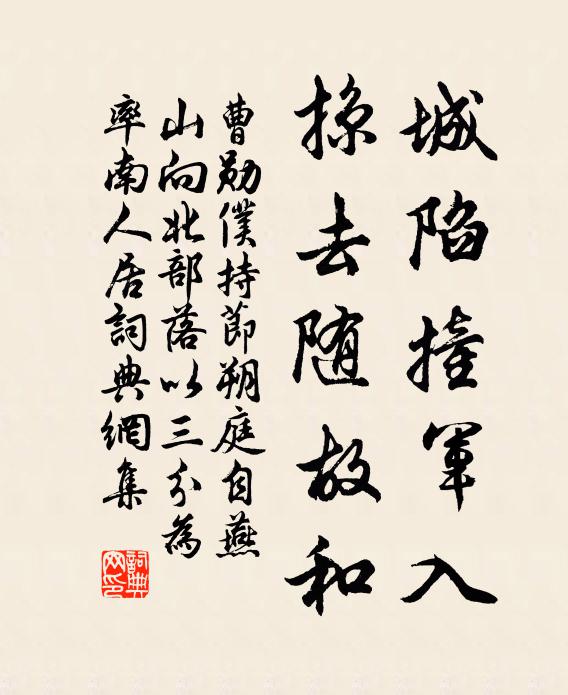 城陷撞軍入
掠去随故和
曹勛僕持節朔庭自燕
山向北部落以三分為
率南人居詞典網集
詞典網印